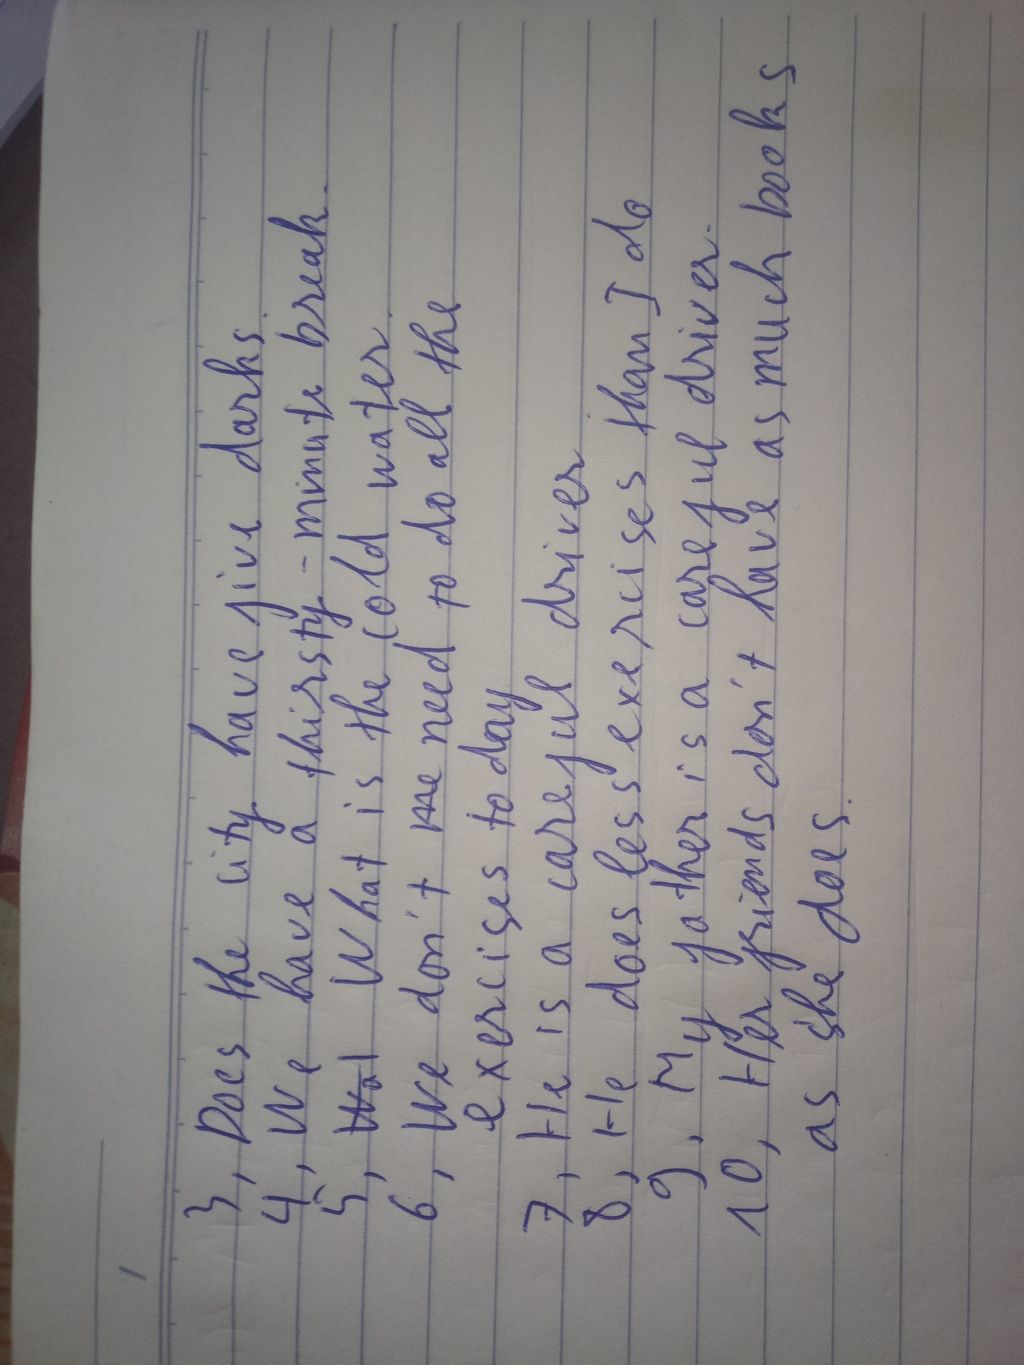 3, Does the city have five darks.
4, We have a thirsty-minute break.
5, What is the cold water.
6, We don't need to do all the
exercises today
7, He is a careful driver
8, He does less exercises than I do
9, My father is a careful driver.
10, Her friends don't have as much books
as she does.